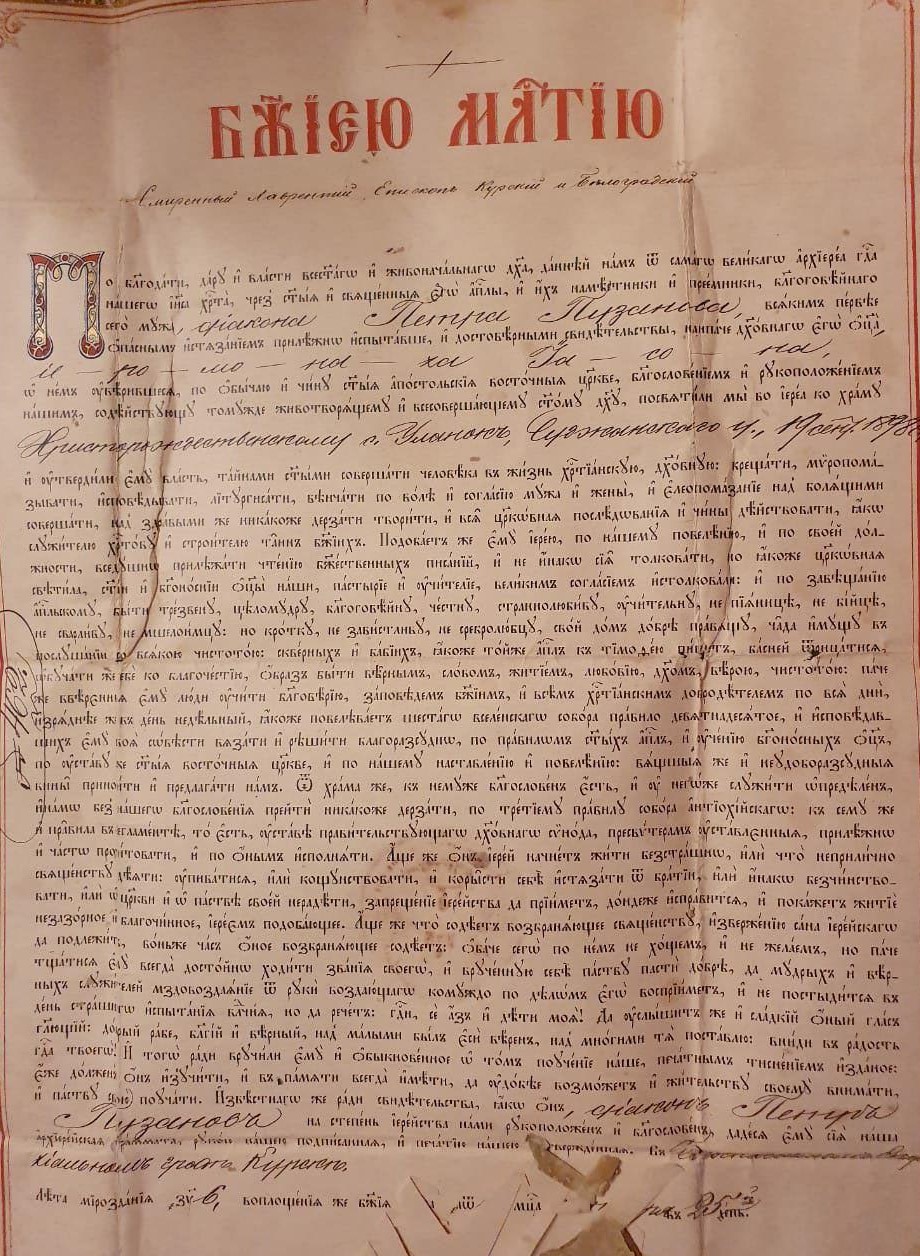 БЖ҃ІЕЮ МЛ҃ТІЮ
Смиренный Лаврентій, Епископъ Курскій и Бѣлоградскій
По бл҃года́ти, да́ру и҆ вла́сти всест҃а́гѡ и҆ живонача́льнагѡ дх҃а, да́ннѣй на́мъ ѿ самагѡ вели́кагѡ а҆рхїере́а гд҇а
на́шегѡ і҆и҃са хрт҇а̀, чрез ст҃ы́ѧ и҆ свѧще́нныѧ є҆гѡ̀ а҆пл҇ы, и҆ и҆́хъ намѣ́стники и҆ прее́мники, бл҃гоговѣ́йнаго
сего̀ му́жа, діакона Петра Пузанова, всѧ́кимъ пе́рвѣе
ѻ҆па́снымъ и҆стѧза́нїемъ прилѣ́жнѡ и҆спыта́вше, и҆ достовѣ́рными свидѣ́тельствы, наипа́че дх҃о́внагѡ є҆гѡ̀ ѻ҆ц҃а̀,
іе – ро – мо – на – ха Іа – со – на,
ѡ҆ не́мъ ᲂу҆вѣ́рившесѧ, по ѻ҆бы́чаю и҆ чи́ну ст҃ы́ѧ а҆по́стольскїѧ восто́чныѧ цр҃кве, бл҃гослове́нїемъ и҆ рꙋкоположе́нїемъ
на́шимъ, содѣ́йствꙋющꙋ томꙋ́жде животворѧ́щемꙋ и҆ всесоверша́ющемꙋ ст҃о́мꙋ дх҃ꙋ, посвѧти́ли мы̀ во і҆ере́а ко хра́мꙋ
Христорождественскому с. Уланокъ, Суджанскаго у., 19 сент. 1898
и҆ ᲂу҆тверди́ли є҆мꙋ̀ вла́сть, та́йнами ст҃ы́ми соверша́ти человѣ́ка въ жи́знь хрⷭ҇тїа́нскꙋю, дх҃о́внꙋю: креща́ти, мѷропома́-
зывати, и҆сповѣ́дывати, лїтꙋргиса́ти, вѣнча́ти по во́лѣ и҆ согла́сїю мꙋ́жа и҆ жены̀, и҆ є҆леопома́занїе над болѧ́щими
соверша́ти, над здра́выми же ника́коже дерза́ти твори́ти, и҆ всѧ̑ црⷦ҇ѡ́внаѧ послѣ́дѡванїѧ и҆ чи́ны дѣ́йствовати, ꙗ҆́кѡ
слꙋжи́телю хрⷭ҇то́вꙋ и҆ строи́телю та̑инъ бж҃їихъ. Подоба́етъ же є҆мꙋ̀ і҆ере́ю, по на́шемꙋ повелѣ́нїю, и҆ по свое́й до́л-
жности, вседꙋ́шнѡ прилѣжа́ти чте́нїю бж҃е́ственныхъ писа́нїй, и҆ не и҆на́кѡ сїѧ̑ толкова́ти, но ꙗ҆́коже црⷦ҇о́внаѧ
свѣти́ла, ст҃і́и и҆ бг҃оно́снїи ѻ҆ц҃ы̀ на́ши, па́стырїе и҆ ᲂу҆чи́телїе, вели́кимъ согла́сїемъ и҆столкова́ли: и҆ по завѣща́нїю
а҆пⷭ҇льскомꙋ, бы́ти тре́звенꙋ, цѣломꙋ́дрꙋ, бл҃гоговѣ́йнꙋ, че́стнꙋ, страннолюби́вꙋ, ᲂу҆чи́тельнꙋ, не пїѧ́ницѣ, не бі́йцѣ,
не сварли́вꙋ, не мшелои́мцꙋ: но кро́ткꙋ, не зави́стливꙋ, не сребролю́бцꙋ, сво́й до́мъ до́брѣ пра́вѧщꙋ, ча̑да и҆мꙋ́щꙋ въ
послꙋша́нїи со всѧ́кою чистото́ю: скве́рныхъ и҆ ба́бїихъ, ꙗ҆́коже то́йже а҆пⷭ҇лъ къ тїмоѳе́ю пи́шетъ, ба́сней ѿрица́тисѧ,
ѡ҆бꙋча́ти же себѐ ко бл҃гоче́стїю, ѻ҆́бразъ бы́ти вѣ̑рнымъ, сло́вомъ, житїе́мъ, любо́вїю, дх҃омъ, вѣ́рою, чистото́ю: па́че
же ввѣ́рєнныѧ є҆мꙋ̀ лю́ди ᲂу҆чи́ти бл҃говѣ́рїю, за́повѣдемъ бж҃їимъ, и҆ всѣ̑мъ хрⷭ҇тїа̑нскимъ добродѣ́телемъ по всѧ̑ дни̑,
и҆зрѧ́днѣе ж въ де́нь недѣ́льный, ꙗ҆́коже повелѣва́етъ шеста́гѡ вселе́нскагѡ собо́ра пра́вило девѧтнадесѧ́тое, и҆ и҆сповѣ́дав-
щихъ є҆мꙋ̀ своѧ̑ со́вѣсти вѧза́ти и҆ рѣши́ти благоразсꙋ́днѡ, по пра́вилѡмъ ст҃ы́хъ а҆пⷭ҇лъ, и҆ ᲂу҆че́нїю бг҃оно́сныхъ ѻ҆ц҃ъ,
по ᲂу҆ста́вꙋ же ст҃ы́ѧ восто́чныѧ цр҃кве, и҆ по на́шемꙋ наставле́нїю и҆ повелѣ́нїю: вѧ́щшыѧ же и҆ неꙋдоборазсꙋ́дныѧ
вины̑ приноси́ти и҆ предлага́ти на́мъ. Ѿ хра́ма же, къ немꙋ́же бл҃гослове́нъ є҆́сть, и҆ ᲂу҆ негѡ́же слꙋжи́ти ѡ҆предѣле́нъ,
и҆на́мѡ без на́шегѡ бл҃гослове́нїѧ прейтѝ ника́коже дерза́ти, по тре́тїемꙋ пра́вилꙋ собо́ра а҆нтїохі́йскагѡ: къ семꙋ́ же
и҆ пра́вила въ регла́ментѣ, то̀ є҆́сть, ᲂу҆ста́вѣ прави́тельствꙋющагѡ дх҃о́внагѡ сѷно́да, пресвѵ́терамъ ᲂу҆ста́влєнныѧ, прилѣ́жнѡ
и҆ ча́стѡ прочито́вати, и҆ по ѡ҆́нымъ и҆сполнѧ́ти. А҆́ще же ѻ҆́нъ, і҆ере́й начне́тъ жи́ти безстра́шнѡ, и҆лѝ что̀ неприли́чно
свѧще́нствꙋ дѣ́ѧти: ᲂу҆пива́тисѧ, и҆лѝ кощꙋ́нствовати, и҆ коры́сти себѣ̀ и҆стѧза́ти ѿ бра́тїи, и҆лѝ и҆на́кѡ безчи́нство-
вати, и҆лѝ ѡ҆ цр҃кви и҆ ѡ҆ па́ствѣ свое́й неради́ти, запреще́нїе і҆ере́йства да прїи́метъ, до́ндеже и҆спра́витсѧ, и҆ пока́жетъ житїѐ
незазо́рное и҆ благочи́нное, і҆ере́ємъ подоба́ющее. А҆́ще же что̀ содѣ́етъ возбранѧ́ющее свѧще́нствꙋ, и҆зверже́нїю са́на і҆ере́йскагѡ
да подлежи́тъ, во́ньже ча́съ ѻ҆́ное возбранѧ́ющее содѣ́етъ: ѻ҆ба́че сегѡ̀ по не́мъ не хо́щемъ, и҆ не жела́емъ, но па́че
тща́тисѧ є҆мꙋ̀ всегда̀ досто́йнѡ ходи́ти зва́нїѧ своегѡ̀, и҆ врꙋче́ннꙋю себѣ̀ па́ствꙋ пастѝ до́брѣ, да мꙋ́дрыхъ и҆ вѣ́р-
ныхъ слꙋжи́телей мздовоздаѧ́нїе ѿ рꙋкѝ воздаю́щагѡ комꙋ́ждо по дѣлѡ́мъ є҆гѡ̀ воспрїи́метъ, и҆ не постыди́тсѧ въ
де́нь стра́шнагѡ и҆спыта́нїѧ влⷣчнѧ, но да рече́тъ: гдⷭ҇и, сѐ а҆́зъ и҆ дѣ́ти моѧ̑! Да ᲂу҆слы́шитъ же и҆ сла́дкїй ѻ҆́ный гла́съ
гл҃ющїй: до́брый ра́бе, бл҃гі́й и҆ вѣ́рный, над ма́лыми бы́лъ є҆сѝ вѣ́ренъ, над мно́гими тѧ̀ поста́влю: вни́ди въ ра́дость
гдⷭ҇а твоегѡ̀! И҆ тогѡ̀ ра́ди врꙋчи́ли є҆мꙋ̀ и҆ ѻ҆быкнове́нное ѡ҆ то́мъ поꙋче́нїе на́ше, печа́тнымъ тисне́нїемъ и҆зда́ное:
є҆́же до́лженъ ѻ҆́нъ и҆зꙋчи́ти, и҆ въ па́мѧти всегда̀ и҆мѣ́ти, да ᲂу҆до́бѣе возмо́жетъ и҆ жи́тельствꙋ своемꙋ̀ внима́ти,
и҆ па́ствꙋ свою̀ поꙋча́ти. И҆звѣ́стнагѡ же ра́ди свидѣ́тельства, ꙗ҆́кѡ ѻ҆́нъ, діаконъ Петръ
Пузановъ на сте́пень і҆ере́йства на́ми рꙋкоположе́нъ и҆ бл҃гослове́нъ, даде́сѧ є҆мꙋ̀ сїѧ̀ на́ша
а҆рхїере́йскаѧ гра́мма́та, рꙋко́ю на́шею подпи́саннаѧ, и҆ печа́тїю на́шею ᲂу҆твержде́ннаѧ. Въ
хіальномъ градѣ Курскѣ.
Лѣ́та мїрозда́нїѧ ҂зу҃6, воплоще́нїѧ же бж҃їѧ мцⷭ҇а въ 25й де́нь.